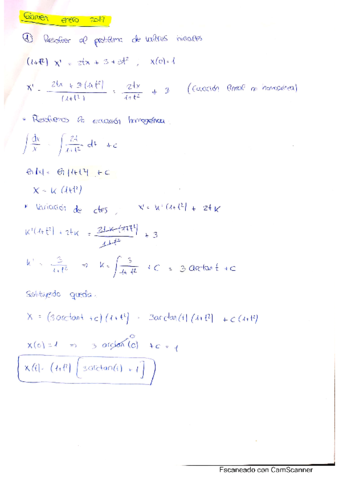 Examen enero 2017
① Resolver el problema de valores iniciales
(1+t²) x' = 2tx + 3 + 3t² , x(0)=1
x' = 2tx + 3(1+t²) / (1+t²) = 2tx / 1+t² + 3 (ecuación lineal no homogénea)
• Resolvemos la ecuación homogénea
∫ dx/x = ∫ 2t / 1+t² dt + c
ln(x) = ln(1+t²) + c
x = k (1+t²)
• Variación de ctes. x' = k'(1+t²) + 2tk
k'(1+t²) + 2tk = 2t k (1+t²) / 1+t² + 3
k' = 3 / 1+t² ⇒ k = ∫ 3 / 1+t² + c = 3 arctan t + c
Sustituyendo queda:
x = (3arctan t + c) (1+t²) = 3arctan(t) (1+t²) + c (1+t²)
x(0)=1 ⇒ 3 arctan(0) + c = 1
x(t) = (1+t²) [3arctan(t) + 1]
Escaneado con CamScanner